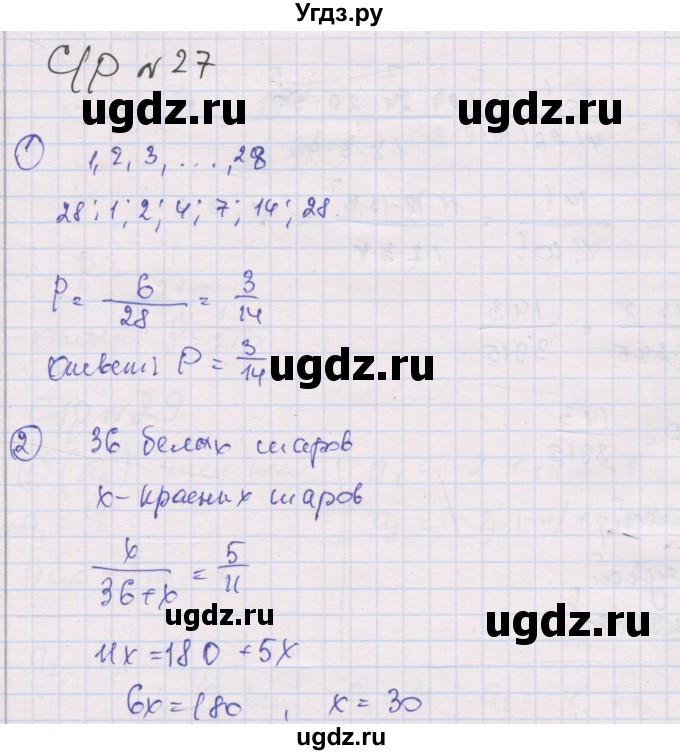 Угдз.ру
С/р № 27
ugdz.ru ugdz.ru
① 1, 2, 3, ..., 28
28: 1; 2; 4; 7; 14; 28.
P = 6/28 = 3/14
Ответ: P = 3/14
ugdz.ru
② 36 белых шаров
x - красных шаров
x/(36+x) = 5/11
ugdz.ru ugdz.ru
11x = 180 + 5x
6x = 180, x = 30
ugdz.ru ugdz.ru